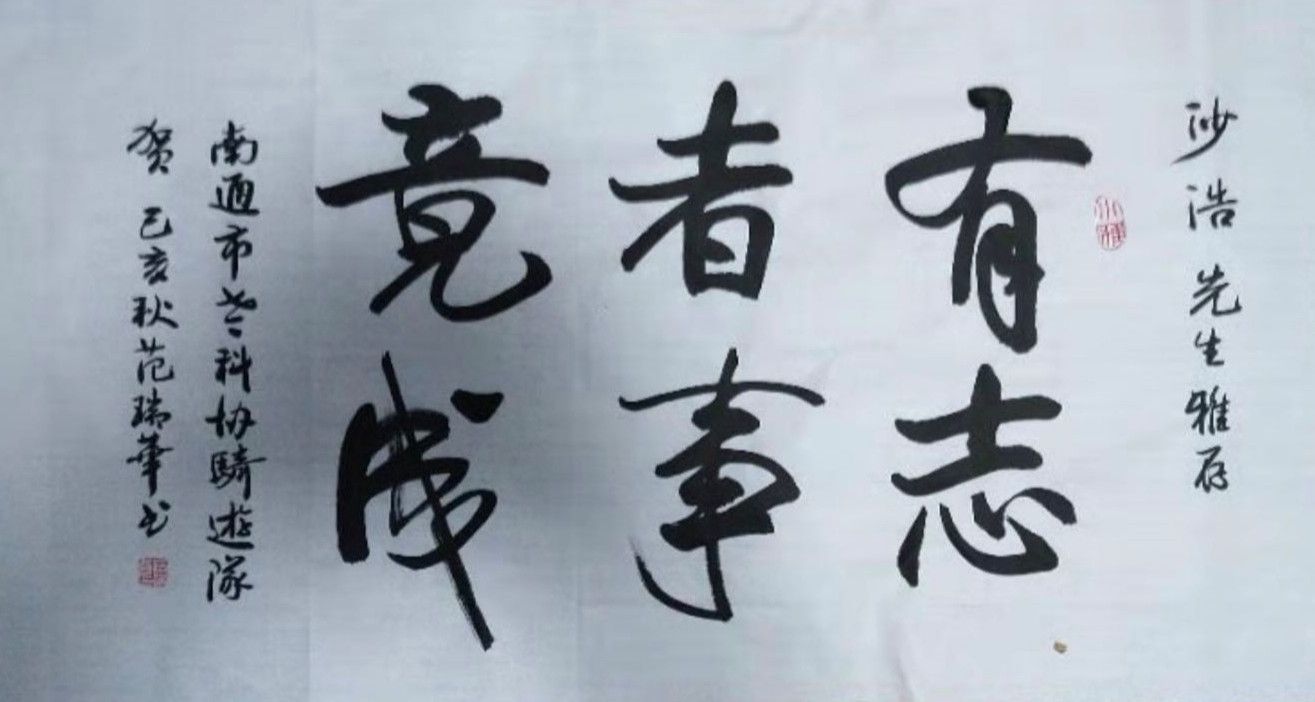 沙浩先生雅存
有志
者事
竟成
南通市老科协騎遊隊
贺 己亥秋范瑞華书